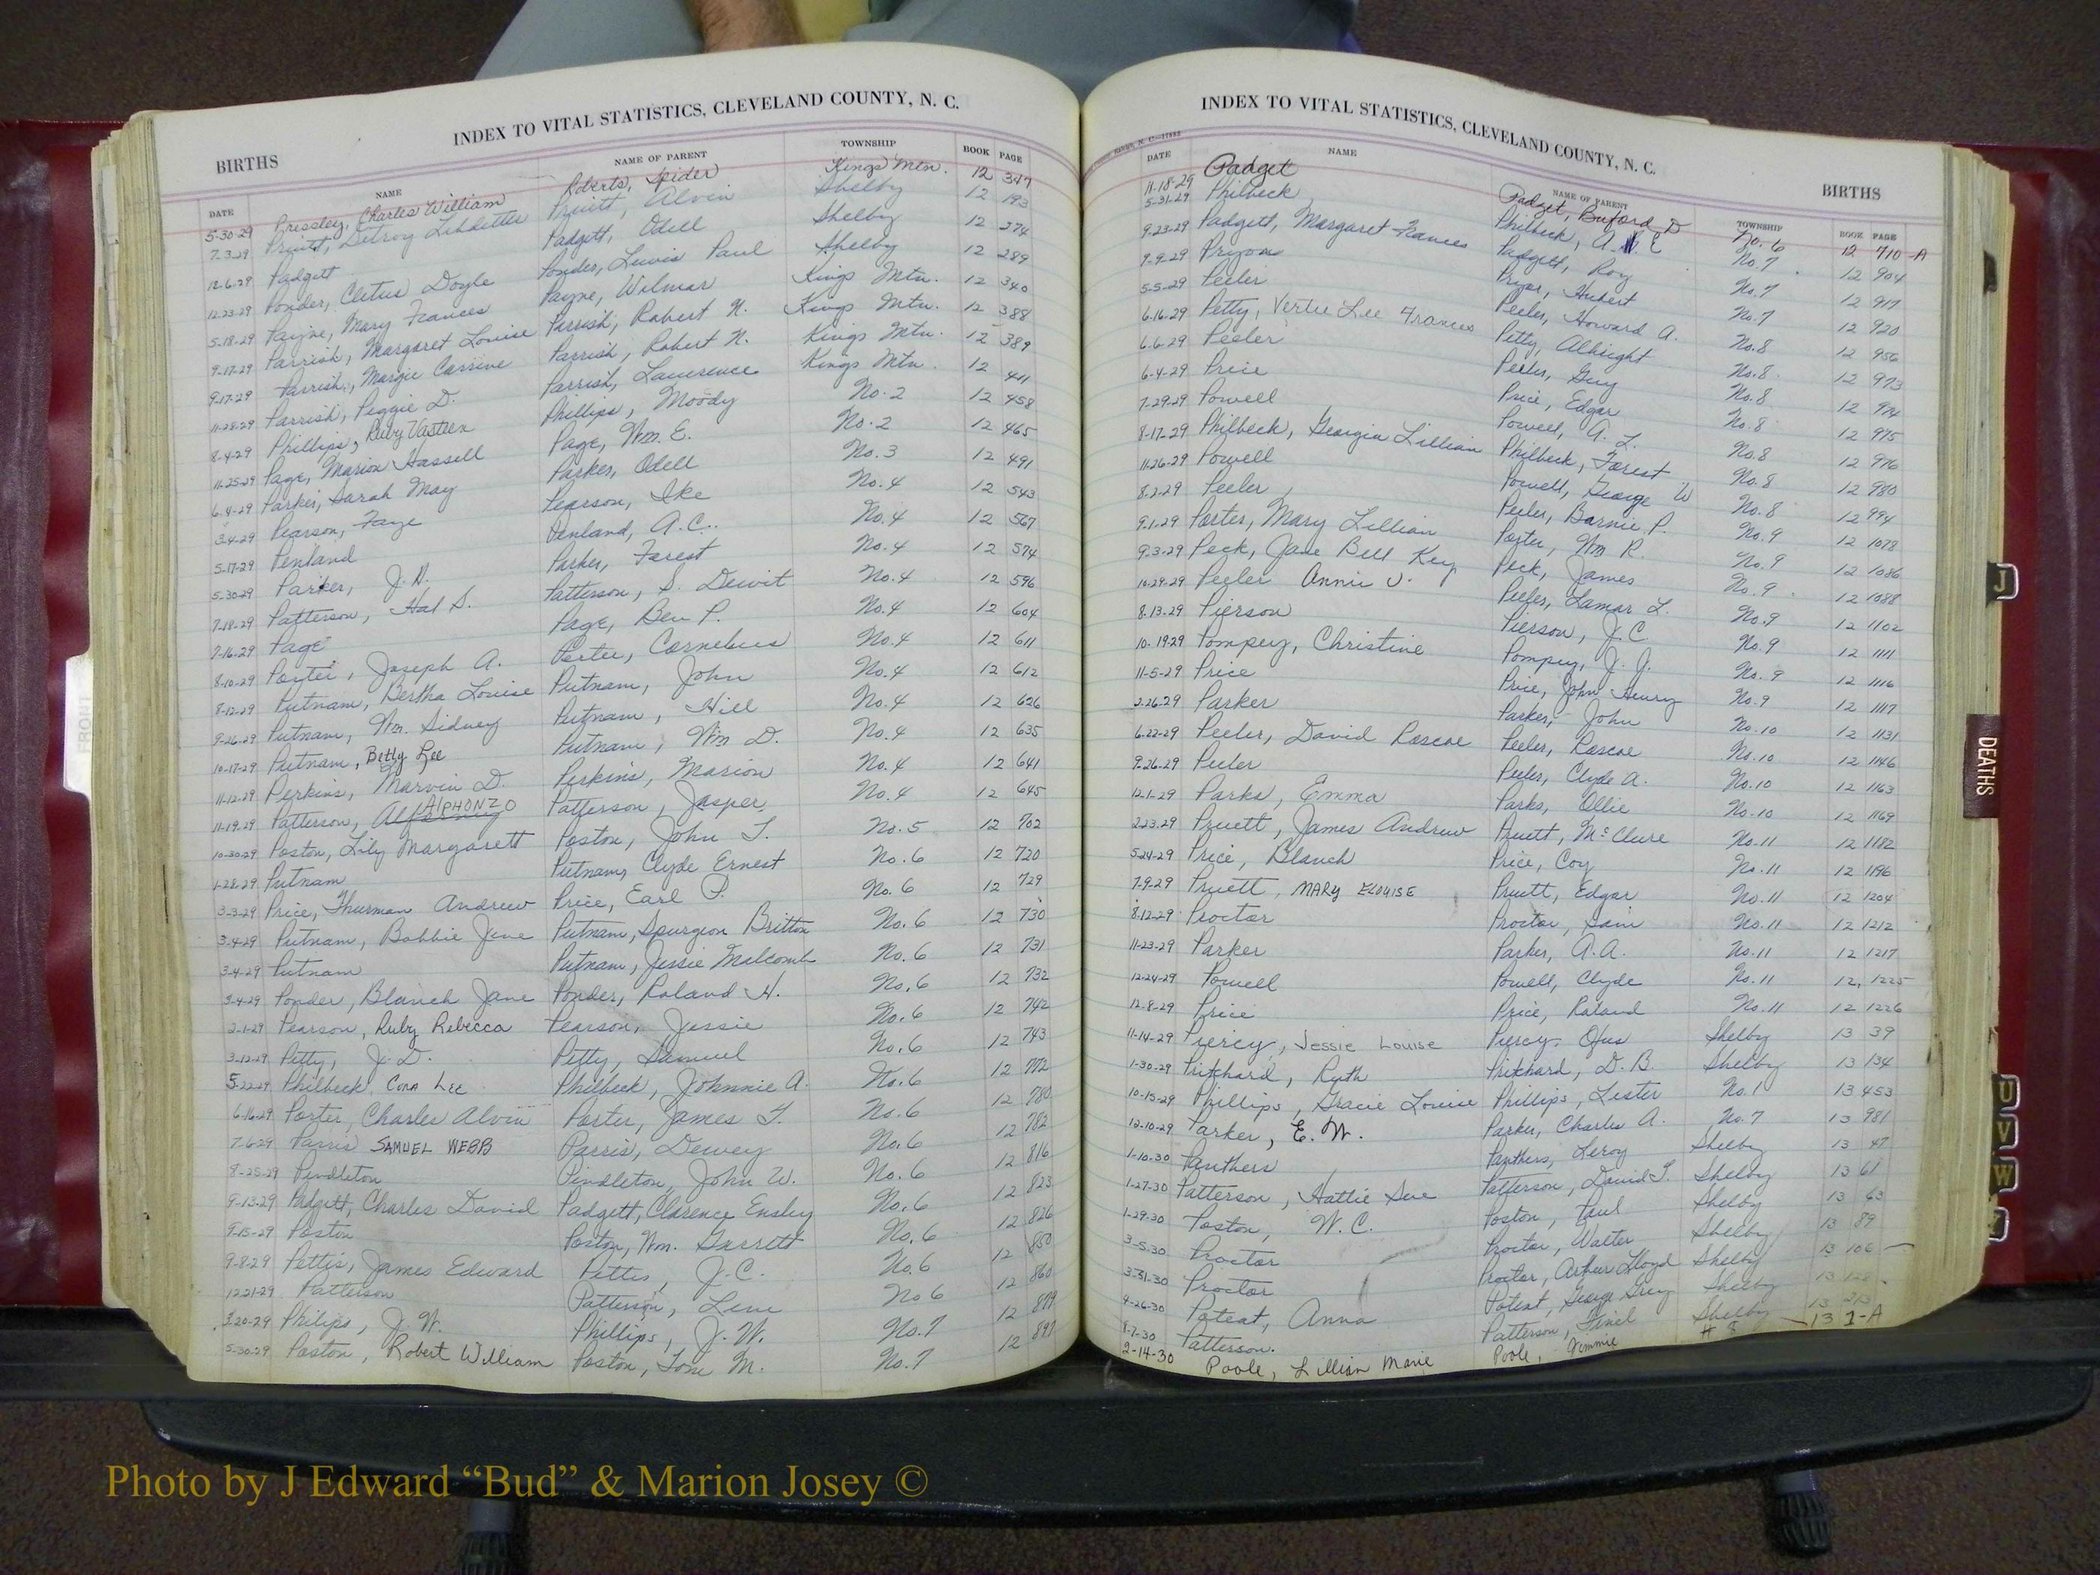 INDEX TO VITAL STATISTICS, CLEVELAND COUNTY, N. C.
BIRTHS
DATE NAME NAME OF PARENT TOWNSHIP BOOK PAGE
5-30-29 Pressley, Charles William Roberts, Spider Kings Mtn. 12 347
7-3-29 Pruitt, Detroy Pruitt, Alvin Shelby 12 193
12-6-29 Padgett Padgett, Odell Shelby 12 274
12-23-29 Ponder, Cletus Doyle Ponder, Lewis Paul Shelby 12 289
5-18-29 Payne, Mary Frances Payne, Wilmar Kings Mtn. 12 340
9-17-29 Parrish, Margaret Louise Parrish, Robert N. Kings Mtn. 12 388
9-17-29 Parrish, Margie Corrine Parrish, Robert N. Kings Mtn. 12 389
11-28-29 Parrish, Peggie D. Parrish, Lawrence Kings Mtn. 12 411
8-4-29 Phillips, Ruby Vasteen Phillips, Moody No. 2 12 458
11-25-29 Page, Marion Hassell Page, Wm. E. No. 2 12 465
6-4-29 Parker, Sarah May Parker, Odell No. 3 12 491
3-4-29 Pearson, Faye Pearson, Ike No. 4 12 543
5-17-29 Penland Penland, A.C. No. 4 12 567
5-30-29 Parker, J. H. Parker, Forest No. 4 12 574
7-18-29 Patterson, Hal S. Patterson, S. Dewit No. 4 12 596
7-16-29 Page Page, Ben P. No. 4 12 604
8-10-29 Porter, Joseph A. Porter, Cornelius No. 4 12 611
8-12-29 Putnam, Bertha Louise Putnam, John No. 4 12 612
9-26-29 Putnam, Wm. Sidney Putnam, Hill No. 4 12 626
10-17-29 Putnam, Betty Lee Putnam, Wm D. No. 4 12 635
11-12-29 Perkins, Marvin D. Perkins, Marion No. 4 12 641
11-19-29 Patterson, ALPHONZO Patterson, Jasper No. 4 12 645
10-30-29 Poston, Lily Margarett Poston, John T. No. 5 12 702
1-28-29 Putnam Putnam, Clyde Ernest No. 6 12 720
3-3-29 Price, Thurman Andrew Price, Earl P. No. 6 12 729
3-4-29 Putnam, Bobbie Jene Putnam, Spurgeon Britton No. 6 12 730
3-4-29 Putnam Putnam, Jessie Malcomb No. 6 12 731
3-4-29 Ponder, Blanch Jane Ponder, Roland H. No. 6 12 732
2-1-29 Pearson, Ruby Rebecca Pearson, Jessie No. 6 12 742
3-12-29 Petty, J. D. Petty, Samuel No. 6 12 743
5-22-29 Philbeck, CORA LEE Philbeck, Johnnie A. No. 6 12 772
6-16-29 Porter, Charles Alvin Porter, James T. No. 6 12 780
7-6-29 Parris SAMUEL WEBB Parris, Dewey No. 6 12 782
8-25-29 Pendleton Pendleton, John W. No. 6 12 816
9-13-29 Padgett, Charles David Padgett, Clarence Ensley No. 6 12 823
9-15-29 Poston Poston, Wm. Garrett No. 6 12 826
9-8-29 Pettis, James Edward Pettis, J.C. No. 6 12 850
12-21-29 Patterson Patterson, No 6 12 860
3-20-29 Philips, J. W. Phillips, J. W. No. 7 12
5-30-29 Poston, Robert William Poston, Tom M. No. 7 12 897
INDEX TO VITAL STATISTICS, CLEVELAND COUNTY, N. C.
BIRTHS
DATE NAME NAME OF PARENT TOWNSHIP BOOK PAGE
11-18-29 Padget Padget, Buford D No. 6 12 710-A
5-31-29 Philbeck Philbeck, A. E No. 7 12 904
9-23-29 Padgett, Margaret Frances Padgett, Roy No. 7 12 917
9-9-29 Pryor Pryor, Hubert No. 7 12 920
5-5-29 Peeler Peeler, Howard A. No. 8 12 956
6-16-29 Petty, Vertie Lee Frances Petty, Albright No. 8 12 973
6-6-29 Peeler Peeler, Guy No. 8 12 974
6-4-29 Price Price, Edgar No. 8 12 975
7-29-29 Powell Powell, A. L. No. 8 12 976
8-17-29 Philbeck, Georgia Lillian Philbeck, Forest No. 8 12 980
11-26-29 Powell Powell, George W No. 8 12 994
8-2-29 Peeler Peeler, Barnie P. No. 9 12 1078
9-1-29 Porter, Mary Lillian Porter, Wm R. No. 9 12 1086
9-3-29 Peck, Jane Bell Key Peck, James No. 9 12 1088
10-29-29 Peeler Annie V. Peeler, Lamar L. No. 9 12 1102
8-13-29 Pierson Pierson, J.C No. 9 12 1111
10-19-29 Pompey, Christine Pompey, J. J. No. 9 12 1116
11-5-29 Price Price, John Henry No. 9 12 1117
2-26-29 Parker Parker, John No. 10 12 1131
6-22-29 Peeler, David Roscoe Peeler, Roscoe No. 10 12 1146
9-26-29 Peeler Peeler, Clyde A. No. 10 12 1163
12-1-29 Parks, Emma Parks, Ollie No. 10 12 1169
2-23-29 Pruett, James Andrew Pruett, McClure No. 11 12 1182
5-24-29 Price, Blanch Price, Coy No. 11 12 1196
7-9-29 Pruett, MARY ELOUISE Pruett, Edgar No. 11 12 1204
8-12-29 Proctor Proctor, Sam No. 11 12 1212
11-23-29 Parker Parker, A.A. No. 11 12 1217
12-24-29 Powell Powell, Clyde No. 11 12 1225
12-8-29 Price Price, Roland No. 11 12 1226
11-14-29 Piercy, Jessie Louise Piercy, Ofus Shelby 13 39
1-30-29 Pritchard, Ruth Pritchard, D. B. Shelby 13 134
10-15-29 Phillips, Gracie Louise Phillips, Lester No. 1 13 453
12-10-29 Parker, E. W. Parker, Charles A. No. 7 13 981
1-10-30 Panthers Panthers, Leroy Shelby 13 47
1-27-30 Patterson, Hattie Sue Patterson, David T. Shelby 13 61
1-29-30 Poston, W. C. Poston, Paul Shelby 13 63
3-5-30 Proctor Proctor, Walter Shelby 13 89
3-31-30 Proctor Proctor, Arthur Lloyd Shelby 13 106
4-26-30 Poteat, Anna Poteat, George Grey Shelby 13
8-7-30 Patterson. Patterson, Shelby 13
2-14-30 Poole, Lillian Marie Poole, Jimmie # 8 13 1-A
FRONT
J
DEATHS
U
V
W
Photo by J Edward “Bud” & Marion Josey ©